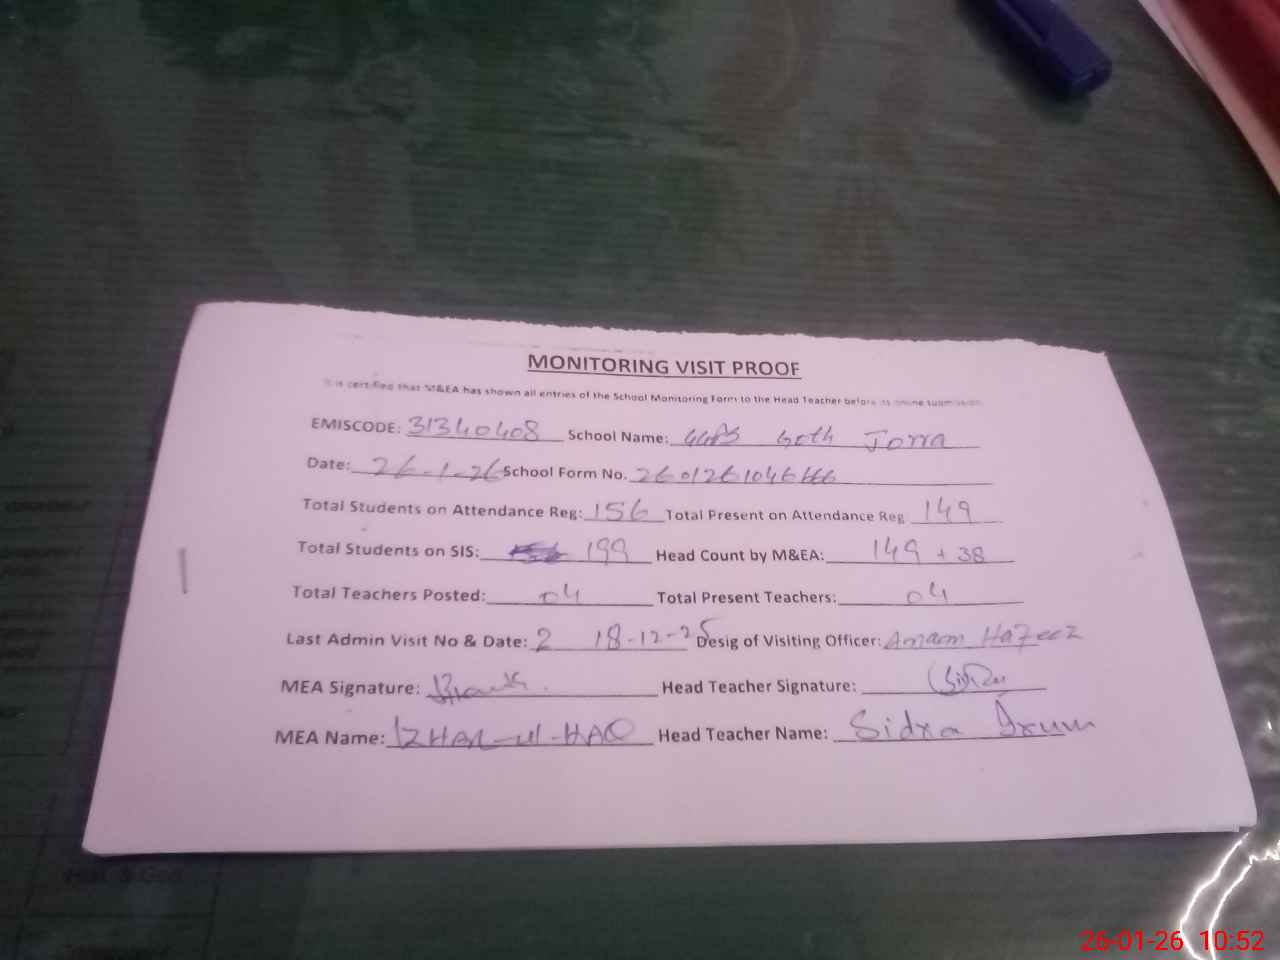 MONITORING VISIT PROOF
It is certified that M&EA has shown all entries of the School Monitoring Form to the Head Teacher before its online submission
EMISCODE: 31340408 School Name: GGPS Goth Jorra
Date: 26-1-26 School Form No. 2601261046
Total Students on Attendance Reg: 156 Total Present on Attendance Reg 149
Total Students on SIS: 199 Head Count by M&EA: 149 + 38
Total Teachers Posted: 04 Total Present Teachers: 04
Last Admin Visit No & Date: 2 18-12-25 Desig of Visiting Officer: Amaam Hafeez
MEA Signature: Head Teacher Signature:
MEA Name: IZHAR-ul-HAQ Head Teacher Name: Sidra Irum
26-01-26 10:52